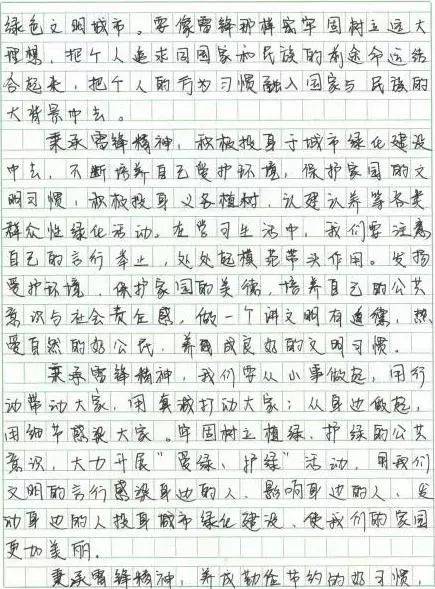 绿色文明城市。要像雷锋那样牢牢固树立远大
理想，把个人追求同国家和民族的前途命运结
合起来，把个人的行为习惯融入国家与民族的
大背景中去。
秉承雷锋精神，积极投身于城市绿化建设
中去，不断培养自己爱护环境，保护家园的文
明习惯，积极投身义务植树、认建认养等各类
群众性绿化活动。在学习生活中，我们要注意
自己的言行举止，处处起模范带头作用。发扬
爱护环境、保护家园的美德，培养自己的公共
意识与社会责任感，做一个讲文明有道德，热
爱自然的好公民，养成良好的文明习惯。
秉承雷锋精神，我们要从小事做起，用行
动带动大家，用真诚打动大家；从身边做起，
用细节感染大家。牢固树立植绿、护绿的公共
意识，大力开展“爱绿、护绿”活动，用我们
文明的言行感染身边的人、影响身边的人、发
动身边的人投身城市绿化建设，使我们的家园
更加美丽。
秉承雷锋精神，养成勤俭节约的好习惯，